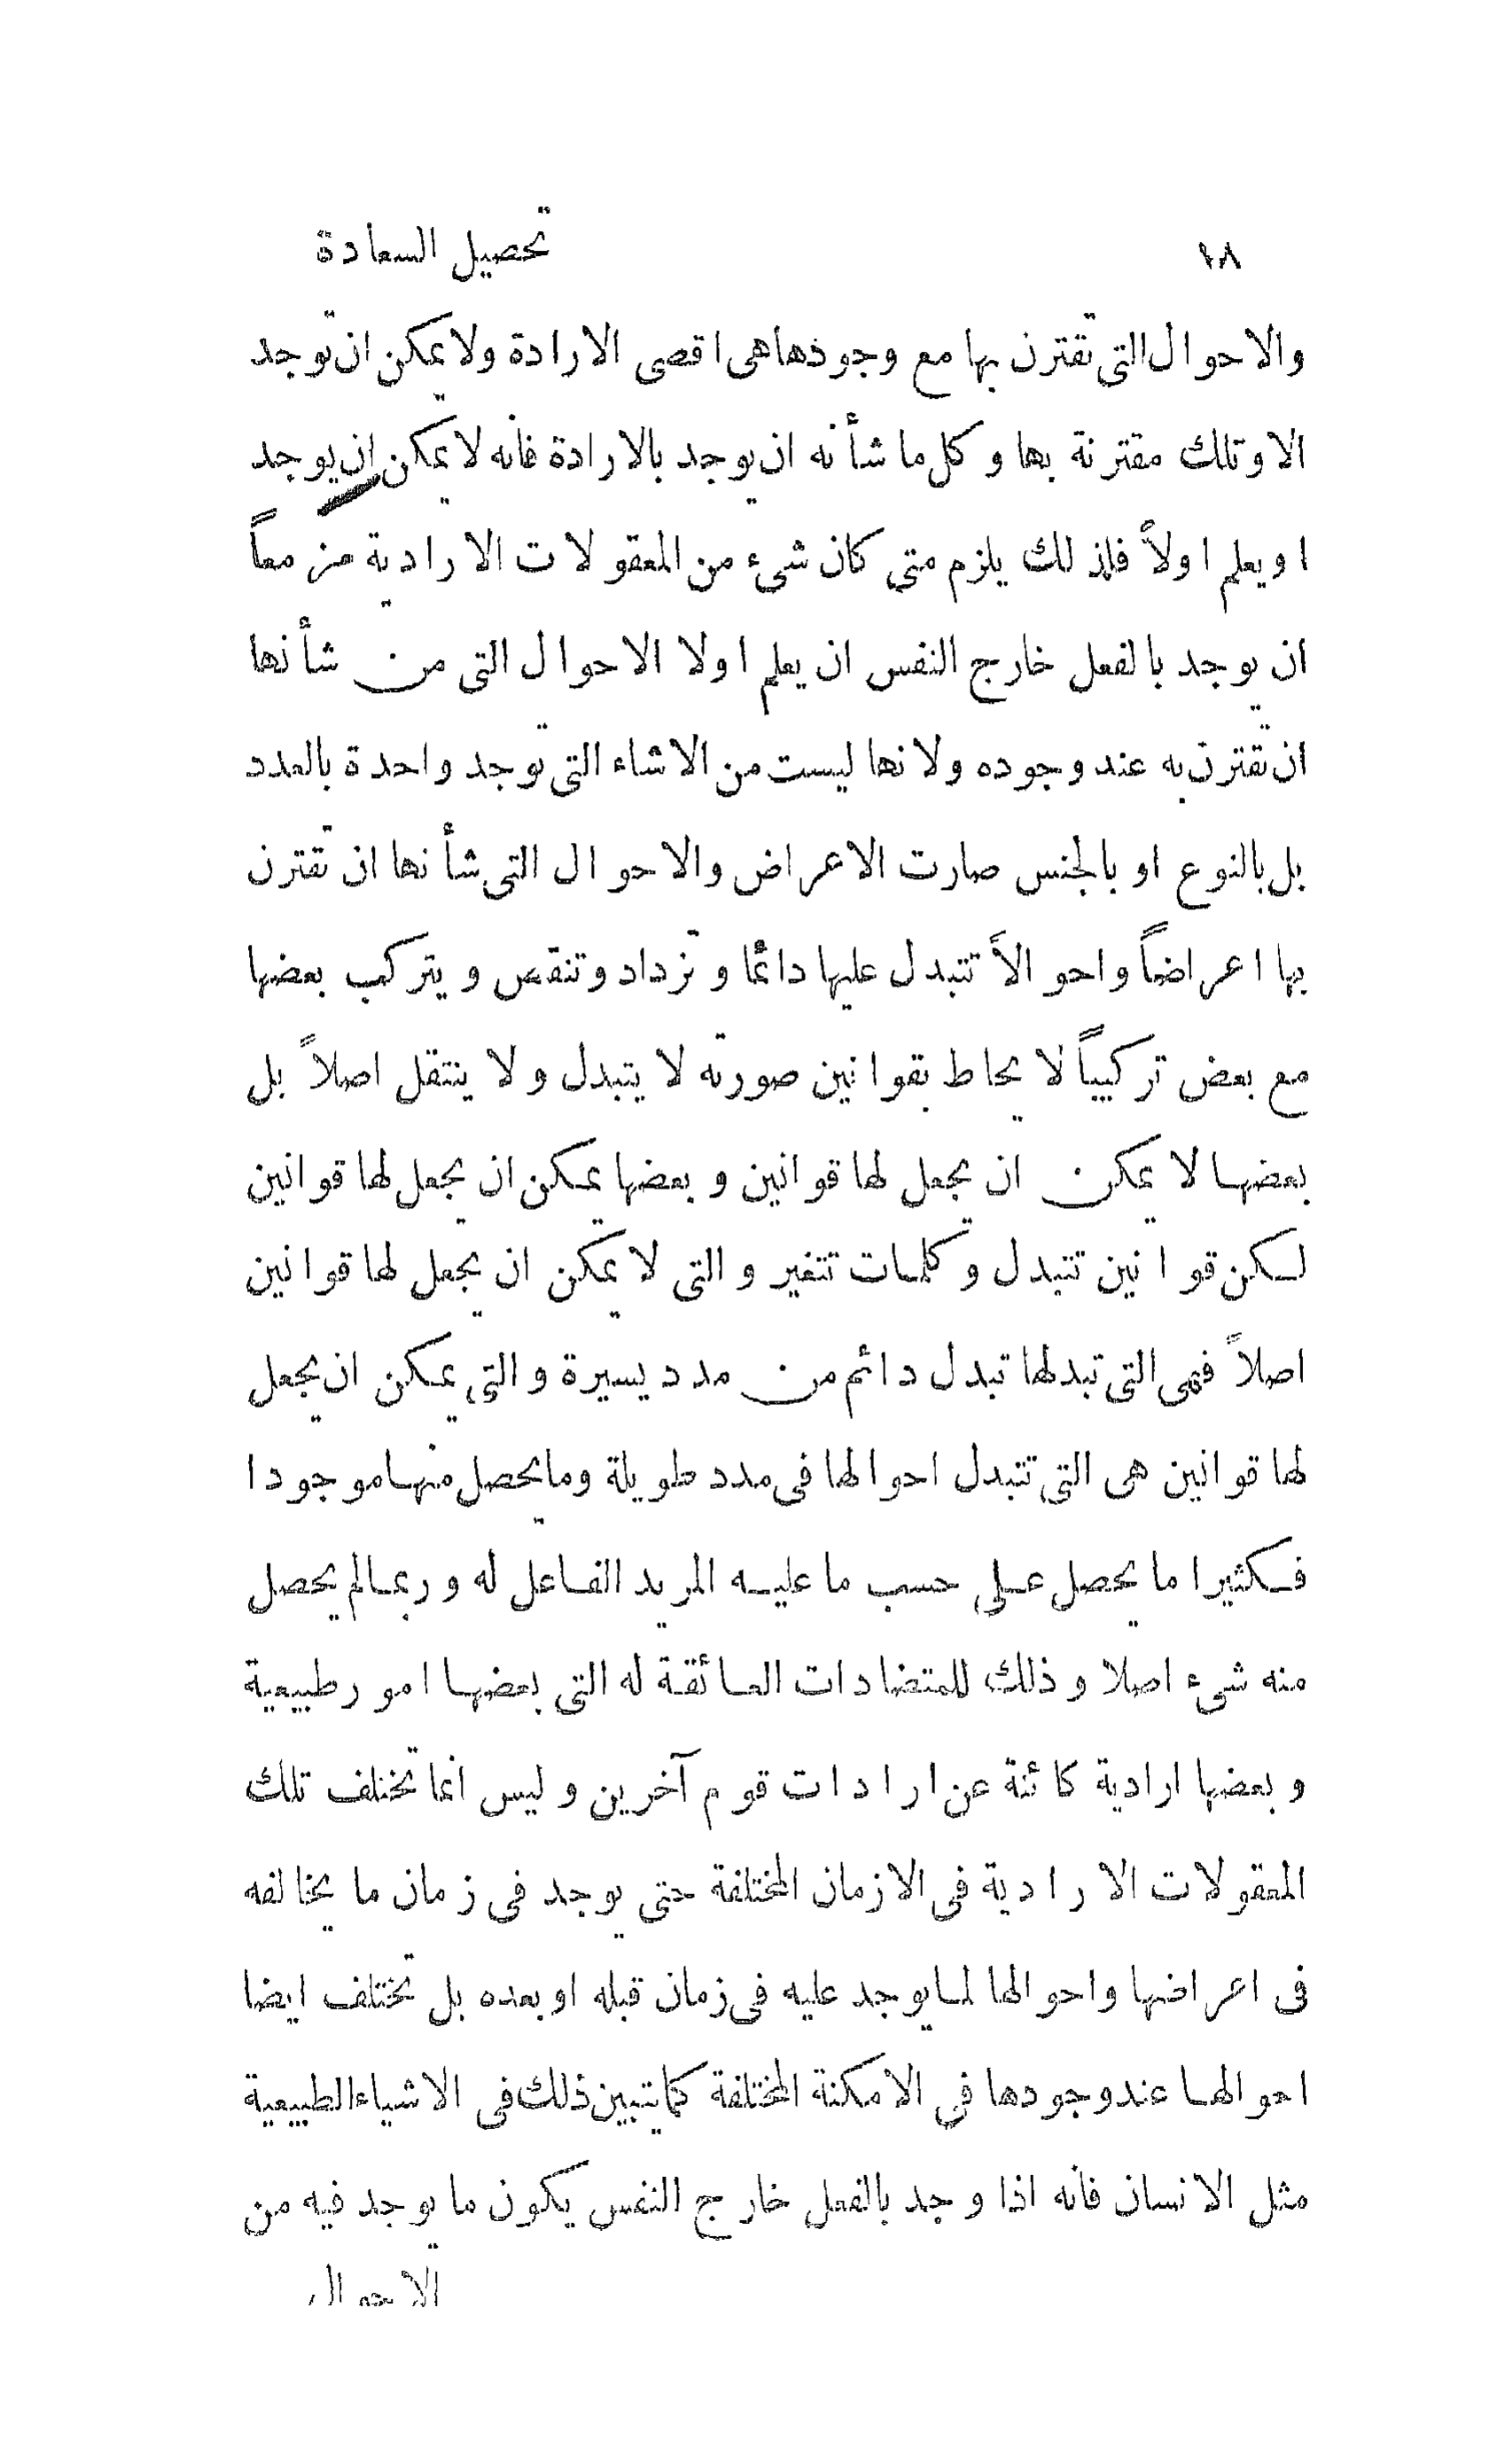 ١٨ تحصيل السعادة
والاحوال التى تقترن بها مع وجودها هى اقصى الارادة ولا يمكن ان توجد
الا وتلك مقترنة بها وكل ما شأنه ان يوجد بالارادة فانه لا يمكن ان يوجد
او يعلم اولاً فلذلك يلزم متى كان شىء من المعقولات الارادية معاً
ان يوجد بالفعل خارج النفس ان يعلم اولا الاحوال التى من شأنها
ان تقترن به عند وجوده ولانها ليست من الاشاء التى توجد واحدة بالعدد
بل بالنوع او بالجنس صارت الاعراض والاحوال التى شأنها ان تقترن
بها اعراضاً واحوالاً تتبدل عليها دائما وتزداد وتنقص ويتركب بعضها
مع بعض تركيباً لا يحاط بقوانين صورته لا يتبدل ولا ينتقل اصلاً بل
بعضها لا يمكن ان يجعل لها قوانين وبعضها يمكن ان يجعل لها قوانين
لكن قوانين تتبدل وكلمات تتغير والتى لا يمكن ان يجعل لها قوانين
اصلاً فهى التى تبدلها تبدل دائم من مدد يسيرة والتى يمكن ان يجعل
لها قوانين هى التى تتبدل احوالها فى مدد طويلة وما يحصل منها موجودا
فكثيرا ما يحصل على حسب ما عليه المريد الفاعل له وربما لم يحصل
منه شىء اصلا وذلك للمتضادات العائقة له التى بعضها امور طبيعية
وبعضها ارادية كائنة عن ارادات قوم آخرين وليس انما تختلف تلك
المعقولات الارادية فى الازمان المختلفة حتى يوجد فى زمان ما يخالفه
فى اعراضها واحوالها لما يوجد عليه فى زمان قبله او بعده بل تختلف ايضا
احوالها عند وجودها فى الامكنة المختلفة كما يتبين ذلك فى الاشياء الطبيعية
مثل الانسان فانه اذا وجد بالفعل خارج النفس يكون ما يوجد فيه من
الاحوال